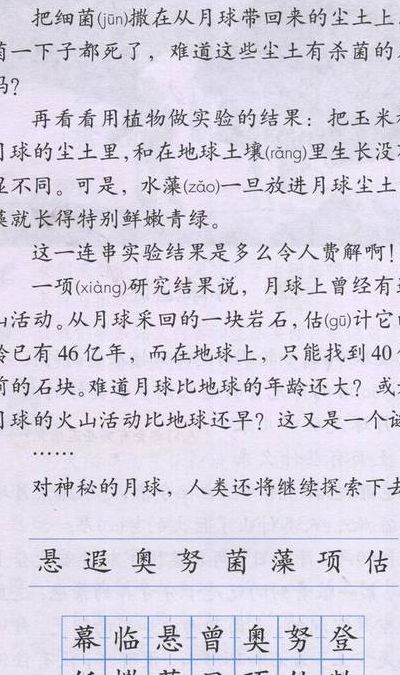 把细菌(jūn)撒在从月球带回来的尘土上
菌一下子都死了，难道这些尘土有杀菌的
吗？
再看看用植物做实验的结果：把玉米
月球的尘土里，和在地球土壤(rǎng)里生长没
显不同。可是，水藻(zǎo)一旦放进月球尘土
藻就长得特别鲜嫩青绿。
这一连串实验结果是多么令人费解啊！
一项(xiàng)研究结果说，月球上曾经有
山活动。从月球采回的一块岩石，估(gū)计它
龄已有46亿年，而在地球上，只能找到40
前的石块。难道月球比地球的年龄还大？或
月球的火山活动比地球还早？这又是一个
……
对神秘的月球，人类还将继续探索下去
悬 遐 奥 努 菌 藻 项 估
幕 临 悬 曾 奥 努 登